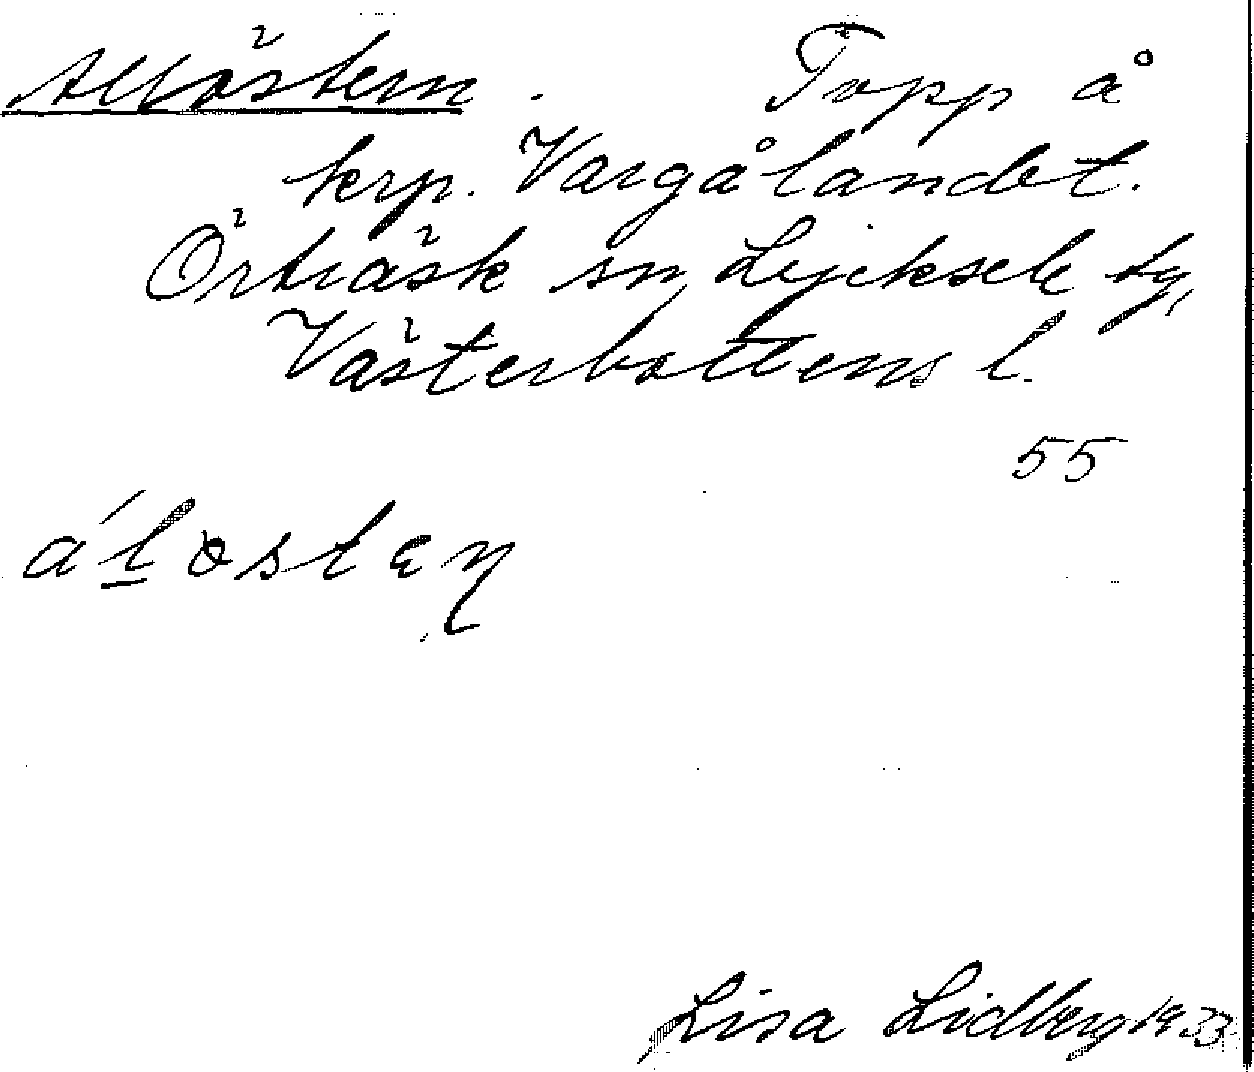 Allöstern. Topp å
krp. Vargålandet.
Örträsk sn Lycksele tg,
Västerbottens l.
55
Lisa Lidberg 1933